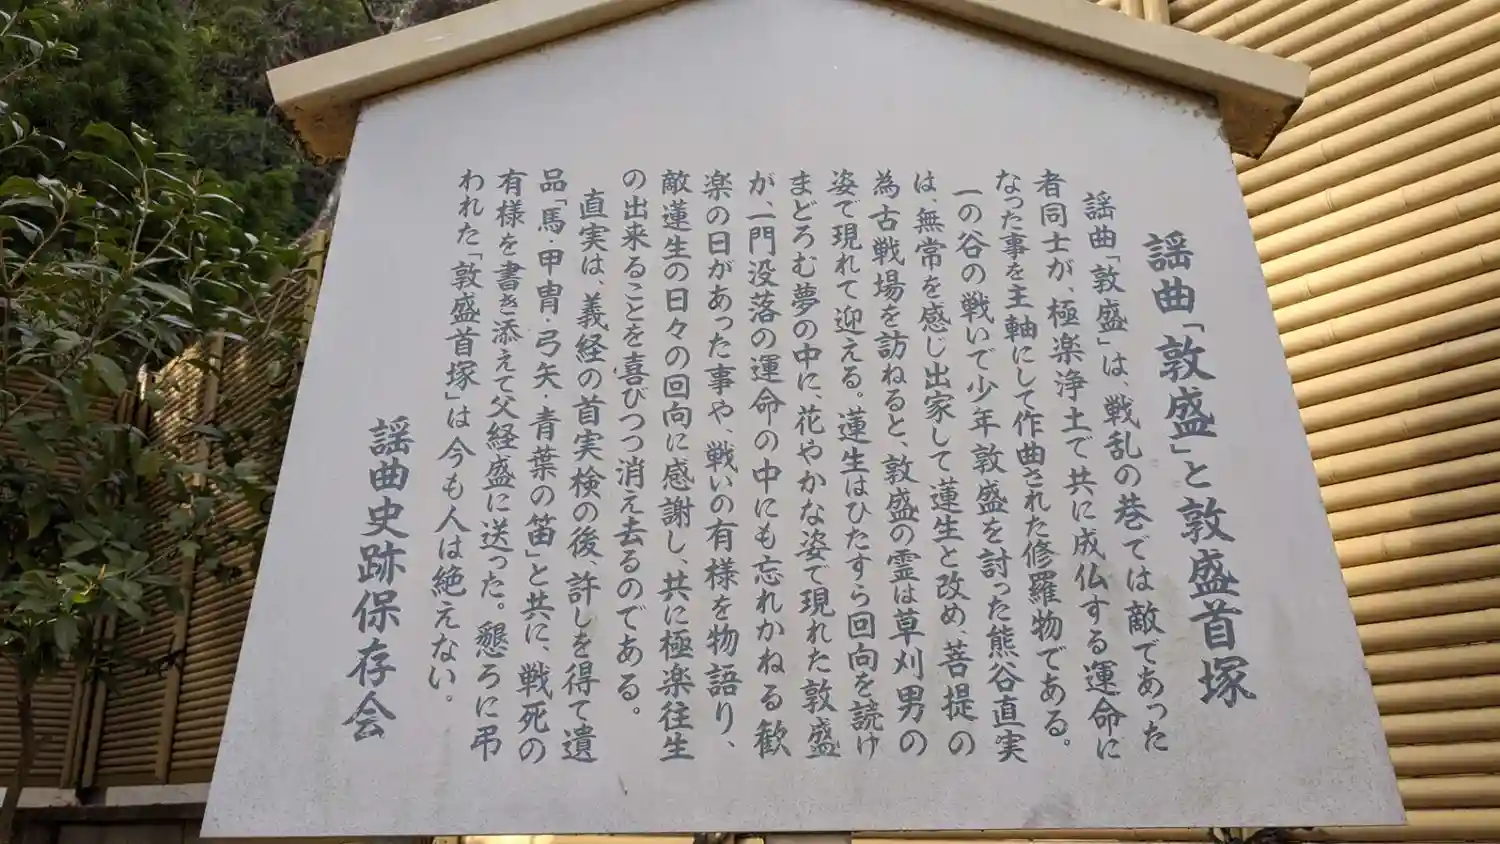 謡曲「敦盛」と敦盛首塚
謡曲「敦盛」は、戦乱の巷では敵であった
者同士が、極楽浄土で共に成仏する運命に
なった事を主軸にして作曲された修羅物である。
一の谷の戦いで少年敦盛を討った熊谷直実
は、無常を感じ出家して蓮生と改め、菩提の
為古戦場を訪ねると、敦盛の霊は草刈男の
姿で現れて迎える。蓮生はひたすら回向を続け
まどろむ夢の中に、花やかな姿で現れた敦盛
が、一門没落の運命の中にも忘れかねる歓
楽の日があった事や、戦いの有様を物語り、
敵蓮生の日々の回向に感謝し、共に極楽往生
の出来ることを喜びつつ消え去るのである。
直実は、義経の首実検の後、許しを得て遺
品「馬・甲冑・弓矢・青葉の笛」と共に、戦死の
有様を書き添えて父経盛に送った。懇ろに弔
われた「敦盛首塚」は今も人は絶えない。
謡曲史跡保存会